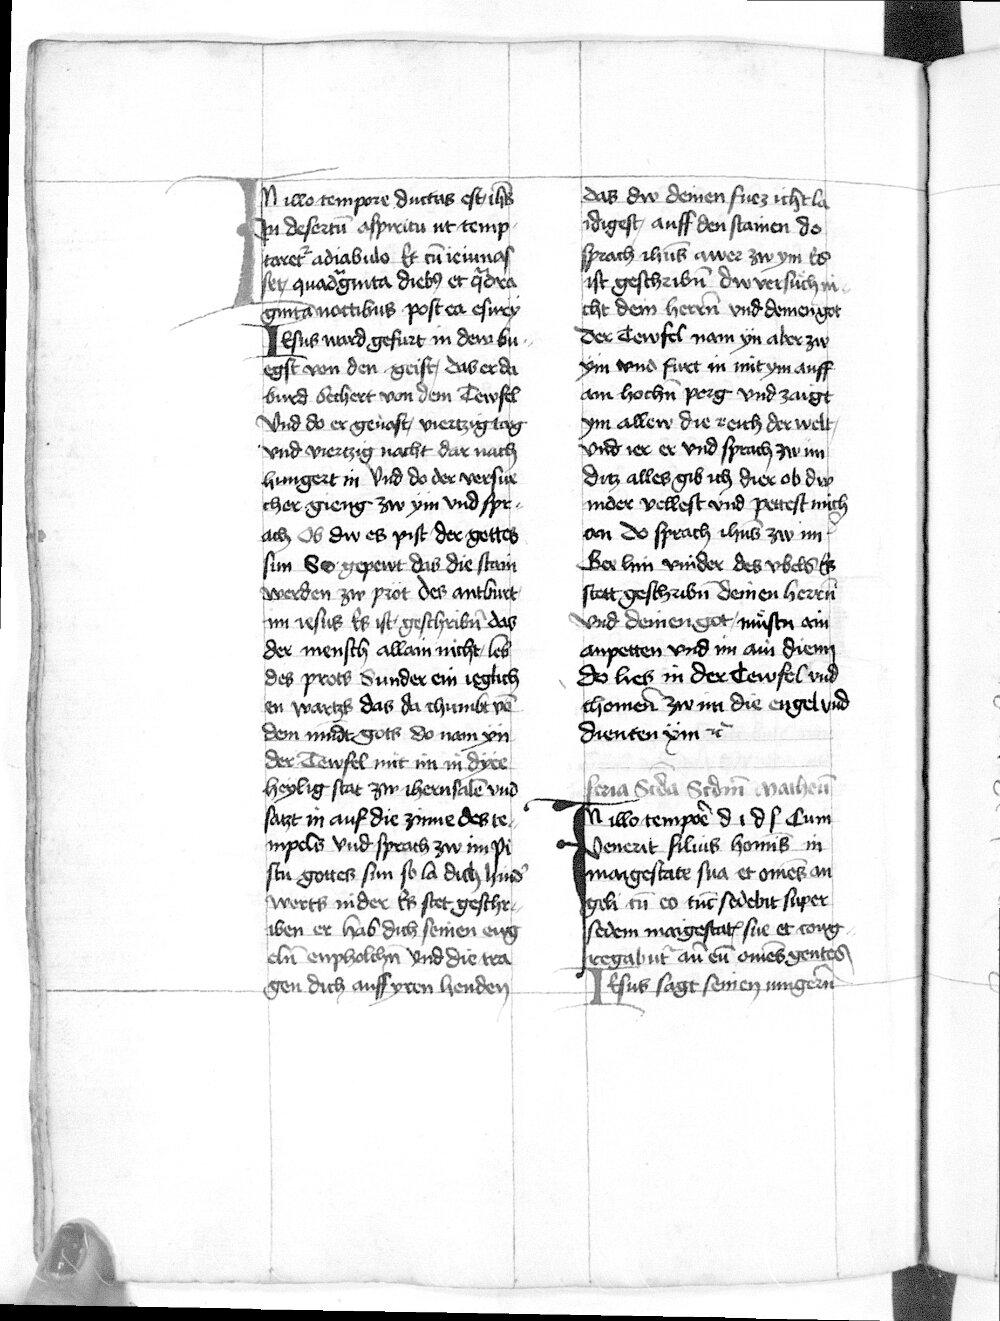 IN illo tempore ductus est ihs̄
In desertū aspiritu ut temp
taret᷑ adiabulo Et cū ieiunas
set quadͣginta diebꝰ et qͣdra
ginta noctibus post ea esurij
Iesus ward gefurt in dem bu-
egst von den geist das er da
burd bechert von dem Tewfel
Vnd do er geuast viertzig tag
vnd viertzig nacht dar nach
hungert in Vnd do der versue
cher gieng zw ym vnd spr-
ach Ob dw es pist der gottes
sun So gepewt das die stain
werden zw prot des antburt
im iesus Es ist geschribn̄ das
der mensch allain nicht leb
des prots Sunder ein ieglich
en wartzs das da chumbt vō
dem mūdt gots do nam yn
der Tewfel mit im in dyee
heylig stat zw iherusalē vnd
satzt in auf die zinne des te-
mpels vnd sprach zw im Pi
stu gottes sun so la dich hind̕
werts nider Es stet geschr-
iben er hab dich seinen eng
eln̄ enpholchn̄ vnd die tra
gen dich auff yren henden
das dw deinen fuez icht la
idigest auff den stainen do
sprach ihūs awer zw ym Es
ist geschribn̄ dw versuch ni-
cht dein herrn̄ vnd deinen got
Der Tewfel nam yn aber zw
ym vnd furt in mit ym auff
ain hochn̄ perg vnd zaigt
ym allew die reich der welt
vnd ier er vnd sprach zw im
ditz alles gib ich dier ob dw
nider vellest vnd pettest mich
an Do sprach ihūs zw im
Gee hin hinder des vbels Es
stett geschribn̄ deinen herrn̄
vnd deinen got muestu ain
anpetten vnd im ain dienn
do lies in der Tewfel vnd
chomen̄ zw im die engel vnd
dienten ym ꝛc̄
feria Scd̄a Scdm̄ Matheū
IN illo tempoꝛē d i d s Cum
Venerit filius homīs in
maigestate sua et om̄es an
geli cū eo tūc sedebit super
sedem maigestatꝭ sue et cong-
regabūt᷑ an̄ eū om̄es gentes
Iesus sagt seinen iungern̄